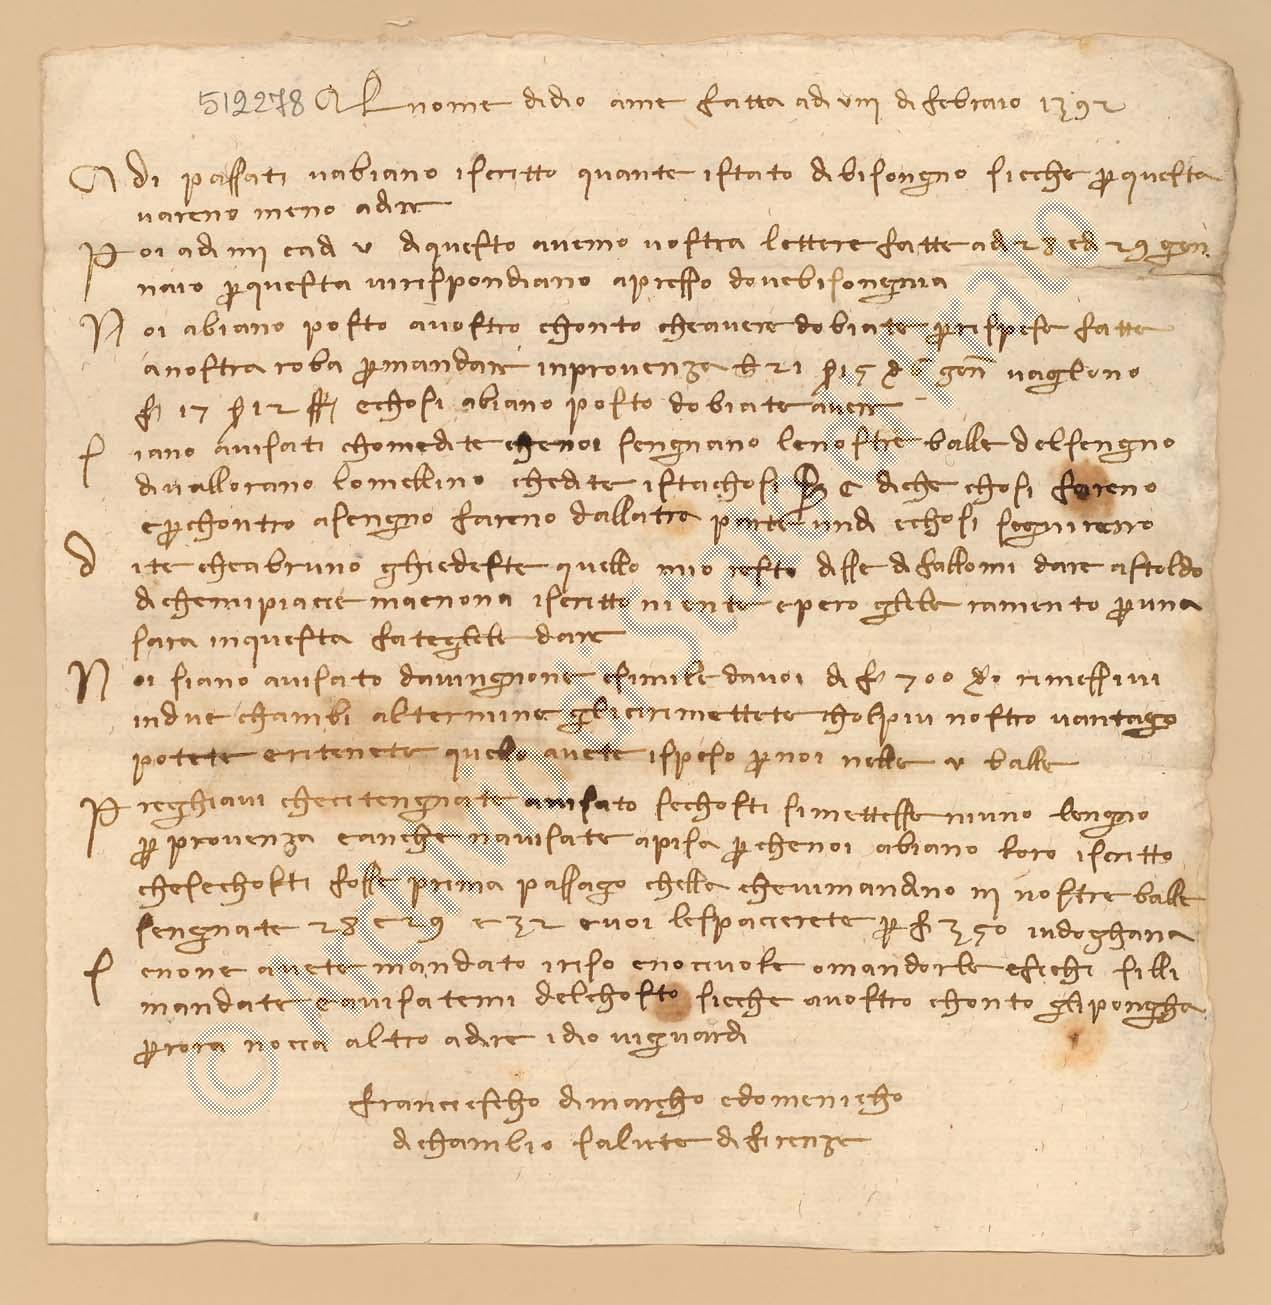 512278 Al nome di dio ame fatta adi viii di febraio 1392
A di passati vabiano iscritto quante istato di bisongno sicche per questa
vareno meno a dire
Poi adi iiii ed v di questo avemo vostra lettere fatte adi 28 ed 29 gen
naio per questa virispondiano apresso dove bisongnia
Noi abiano posto a vostro chonto che avere dobiate per ispese fatte
a nostra roba per mandare in provenza 21 s 15 d 6 gen vagliono
f 17 s 12 echosi abiano posto dobiate avere
Siano avisati chome dite che noi sengnano le nostre balle del sengno
di vallorano lomellino che dite istachosi e di che chosi fareno
e per chontro asengno fareno dallatra parte und echosi seguireno
dite che a bruno ghiedeste quello mio resto disse di fallomi dare astoldo
di che mi piacie ma e nona iscritto niente e pero gliele ramento per una
sara in questa fategliele dare
Noi siano avisato da vingnone esimile da voi di f 700 rimessivi
in due chambi al termine gli ci rimettete chol piu nostro vantago
potete e ritenete quelo avete ispeso per noi nelle v balle
Preghiavi checi tengnate avisato se chosti si mettesse niuno lengno
per provenza e anche navisate a pisa per che noi abiano loro iscritto
che se chosti fosse prima passago chelle che vi mandino iii nostre balle
sengnate 28 e 29 e 32 e voi le spaccerete per f 350 in doghana
Senone avete mandato iriso e nocivole o mandorle e fichi silli
mandate e avisatemi del chosto sicche a vostro chonto gli pongha
per rora nocca altro a dire idio vi guardi
francescho di marcho e domenicho
di chambio salute di firenze
© Archivio di Stato di Prato